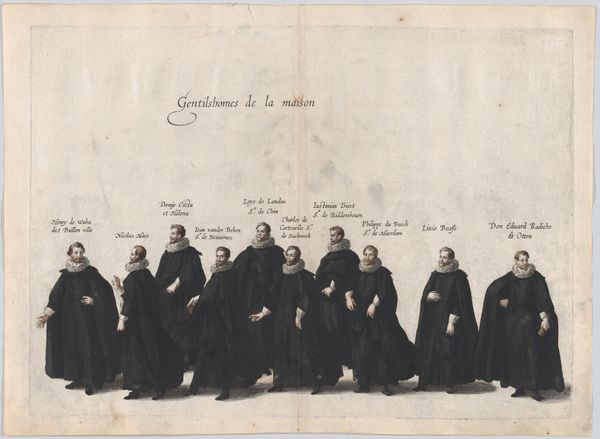 Gentilshomes de la maison
Henry de Waha
dict Baillon ville
Nicolas Maes
Donyn Costa
et Helena
Iean vander Beken
Sr. de Neuuernes
Loys de Landas
Sr. de Chin
Charles de
Cortewile Sr.
de
Iustinian Triest
Sr. de Riddershouen
Philippe du Bosch
Sr. de Maerdam
Liuio
Don Eduard Radicho
de Otton